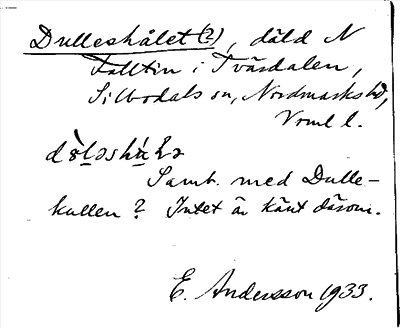 Dulleshålet (?), däld N
Falltin i Tvärdalen,
Silbodals sn, Nordmarks hd,
Vrml l.
Samb. med Dulle-
kullen? Intet är känt därom.
E. Andersson 1933.